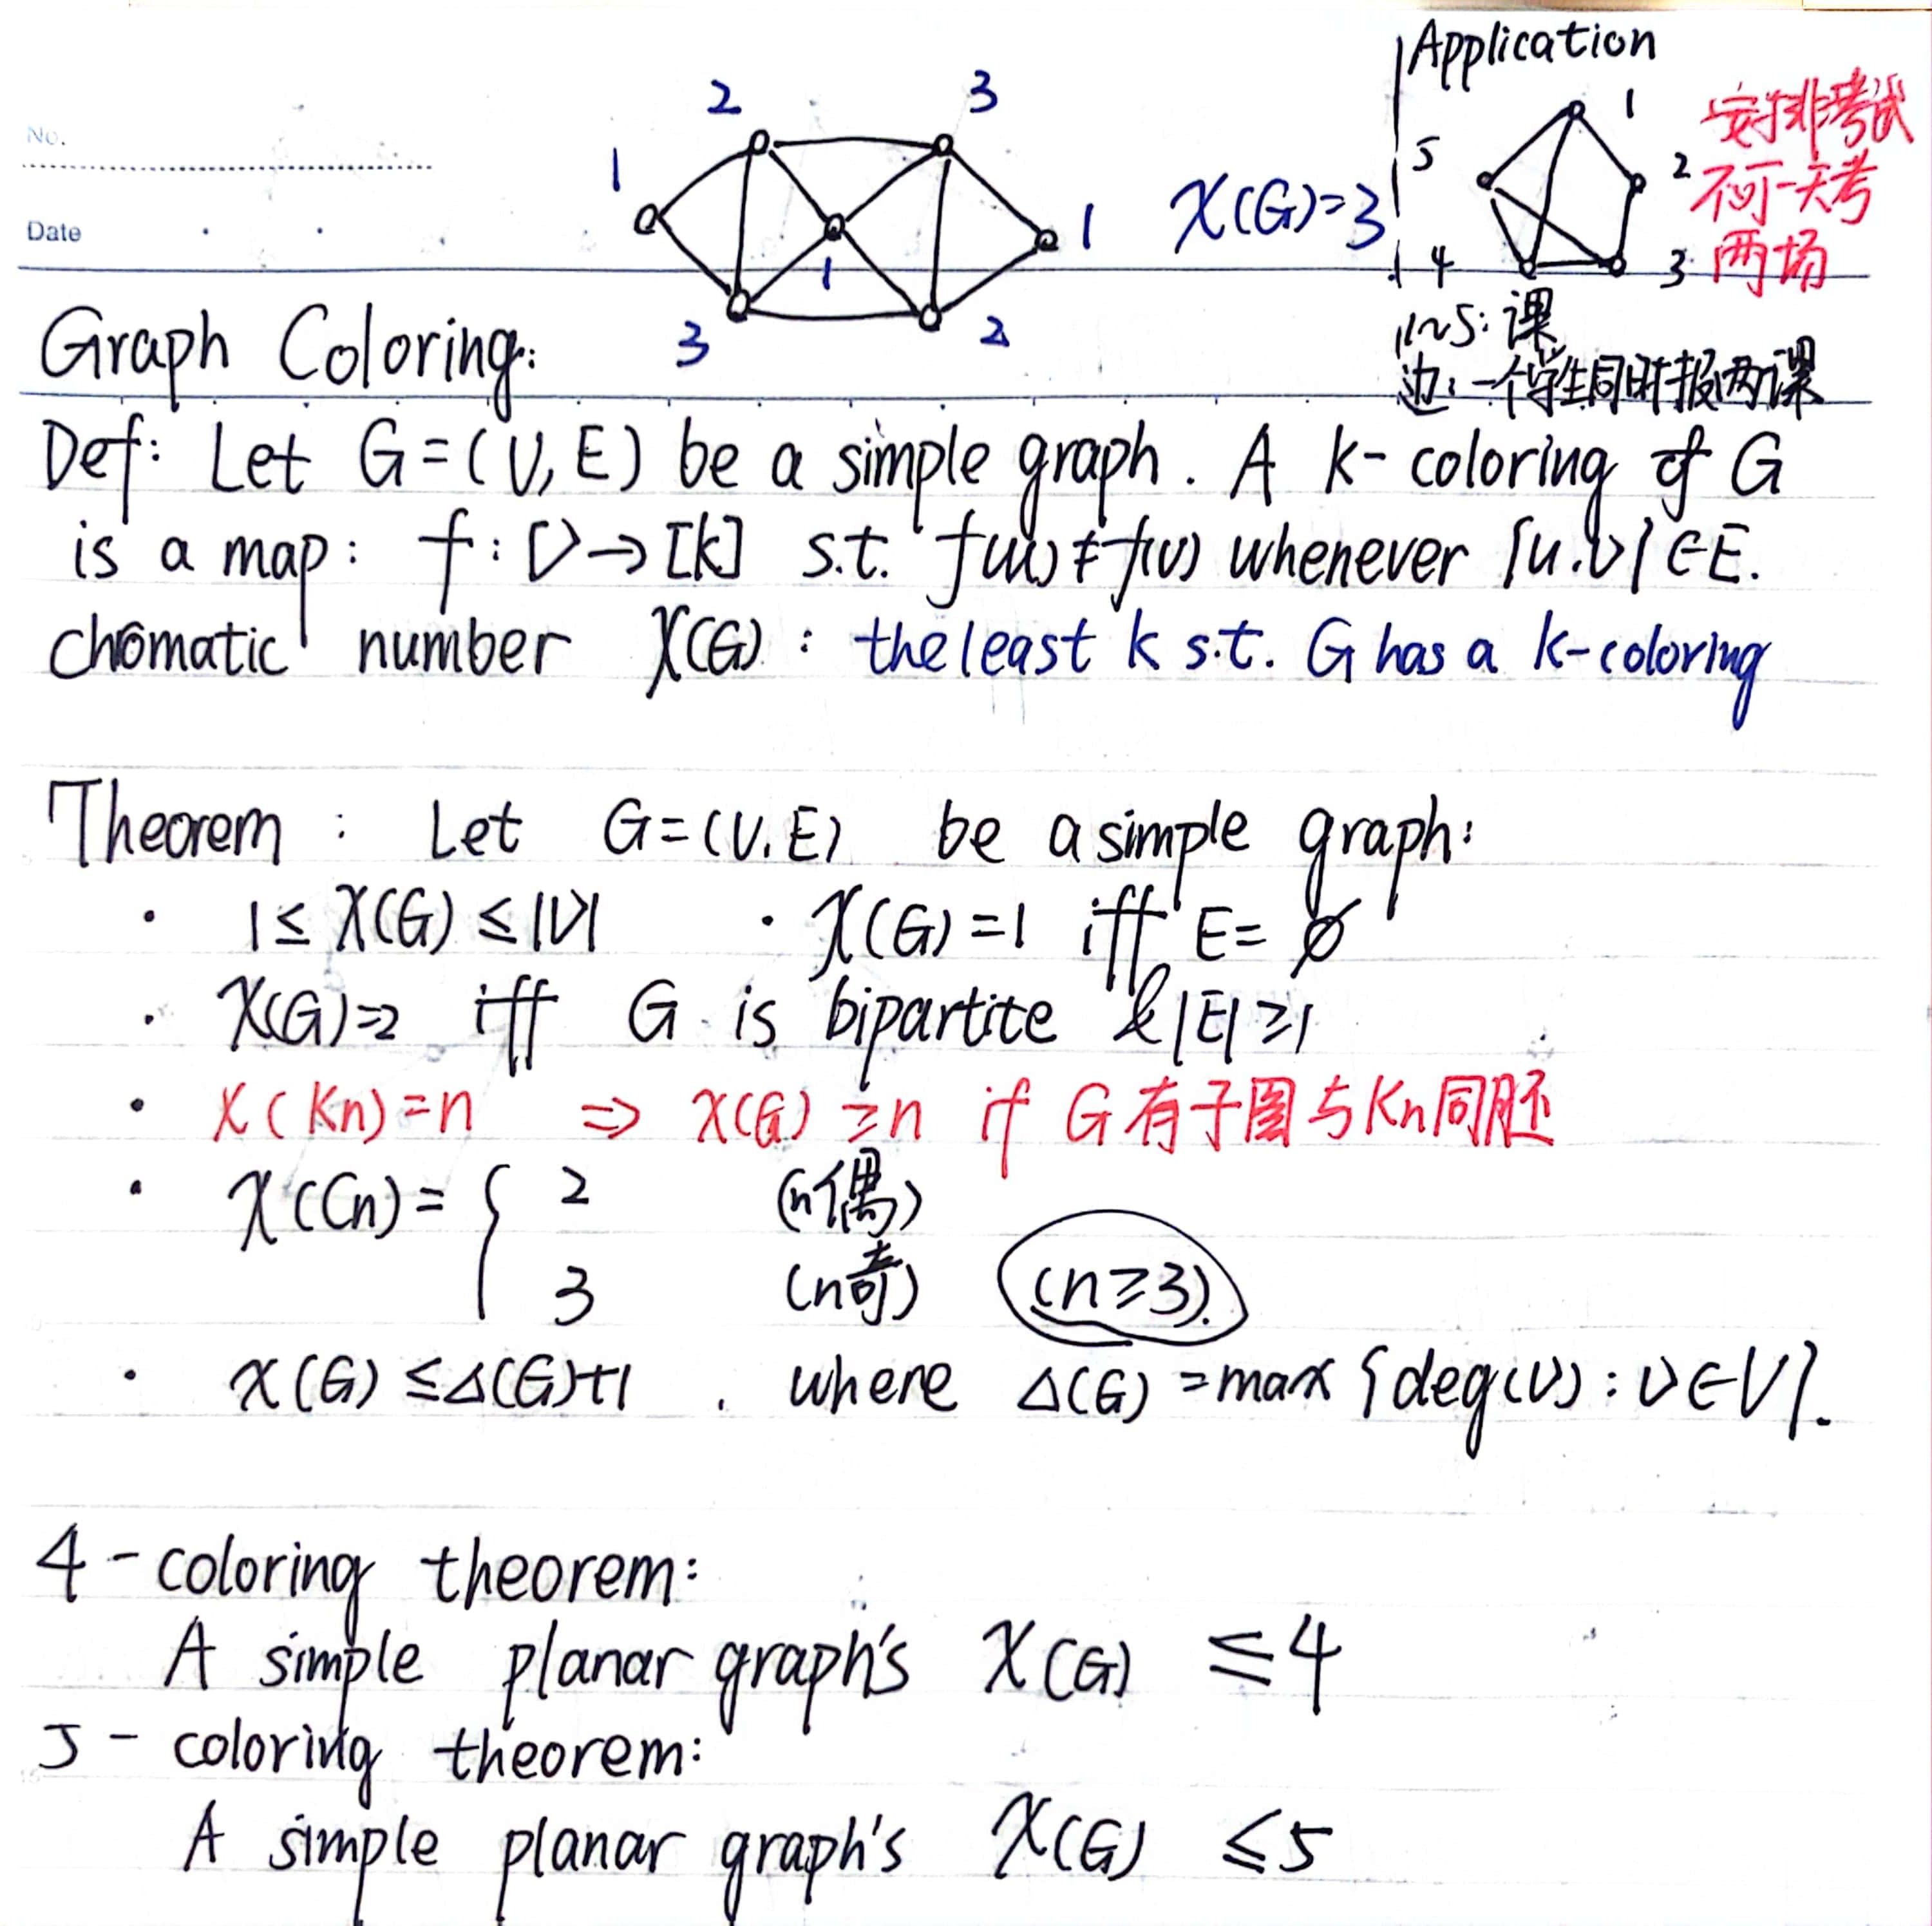 No.
Date
2
3
1
1
1
3
2
χ(G)=3
Application
1
2
3
4
5
安排考试
不可一天考
两场
1~5: 课
边: 一个学生同时报两课
Graph Coloring:
Def: Let G=(V,E) be a simple graph. A k-coloring of G
is a map: f: V→[k] s.t. f(u)≠f(v) whenever {u.v}∈E.
chomatic number χ(G): the least k s.t. G has a k-coloring
Theorem: Let G=(V.E) be a simple graph:
· 1≤χ(G)≤|V| · χ(G)=1 iff E=∅
· χ(G)=2 iff G is bipartite & |E|≥1
· χ(Kn)=n ⇒ χ(G)≥n if G有子图与Kn同胚
· χ(Cn)={ 2 (n偶)
3 (n奇) (n≥3).
· χ(G)≤Δ(G)+1. where Δ(G)=max{deg(v): v∈V}.
4-coloring theorem:
A simple planar graph's χ(G) ≤4
5-coloring theorem:
A simple planar graph's χ(G) ≤5